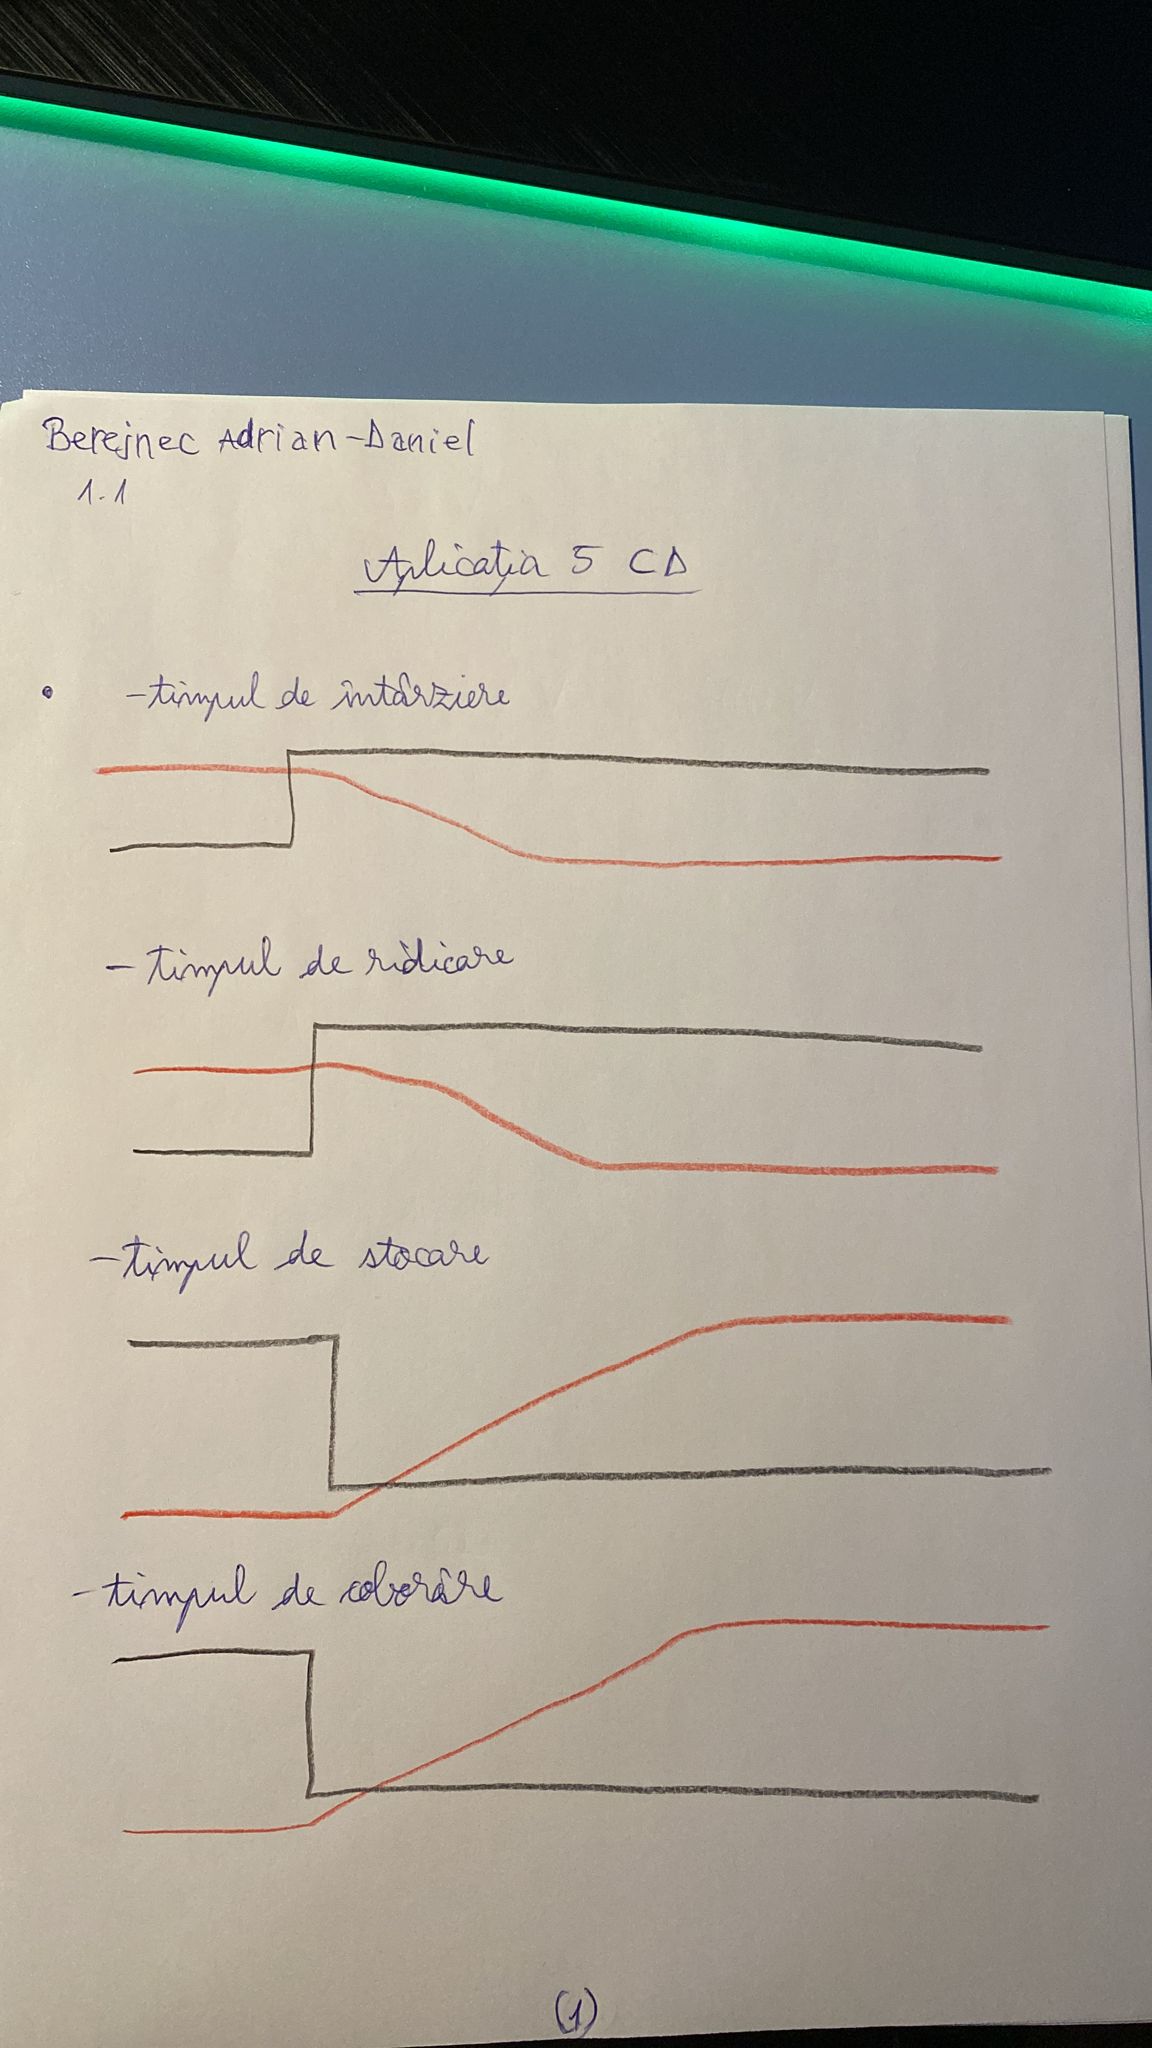 Berejnec Adrian-Daniel
1.1
Aplicația 5 CD
• -timpul de întârziere
-timpul de ridicare
-timpul de stocare
-timpul de coborâre
(1)